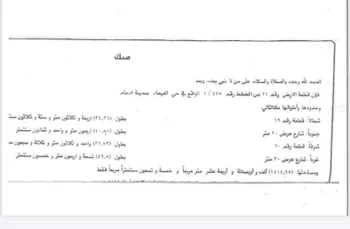 صك
الحمد لله وحده والصلاة والسلام على من لا نبي بعده، وبعد
فإن قطعة الارض رقم ٢١ من المخطط رقم ٤٧٥ / ١ الواقع في حي الفيحاء بمدينة الدمام
وحدودها وأطوالها كالتالي
شمالا: قطعة رقم ١٩ بطول: (٣٤,٣٦) اربعة و ثلاثون متر و ستة و ثلاثون سنت
جنوبا: شارع عرض ٢٠ متر بطول: (٤٠,٨١) اربعون متر و واحد و ثمانون سنتمتر
شرقا: قطعة رقم ٢٠ بطول: (٣١,٧٣) واحد و ثلاثون متر و ثلاثة و سبعون س
غربا: شارع عرض ٣٠ متر بطول: (٤٩,٥) تسعة و اربعون متر و خمسون سنتمتر
ومساحتها: (١٤١٤,٩٥) ألف و أربعمائة و أربعة عشر متر مربعا و خمسة و تسعون سنتمترا مربعا فقط